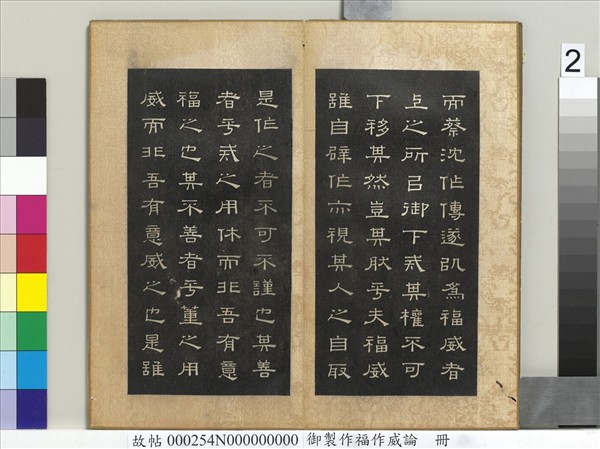 而蔡沈作傳遂以為福威者
上之所㠯御下戒其權不可
下移其然豈其肰乎夫福威
誰自辟作亦視其人之自取
是作之者不可不謹也其善
者乎戒之用休而非吾有意
福之也其不善者乎董之用
威而非吾有意威之也是誰
2
故帖 000254N000000000 御製作福作威論 冊